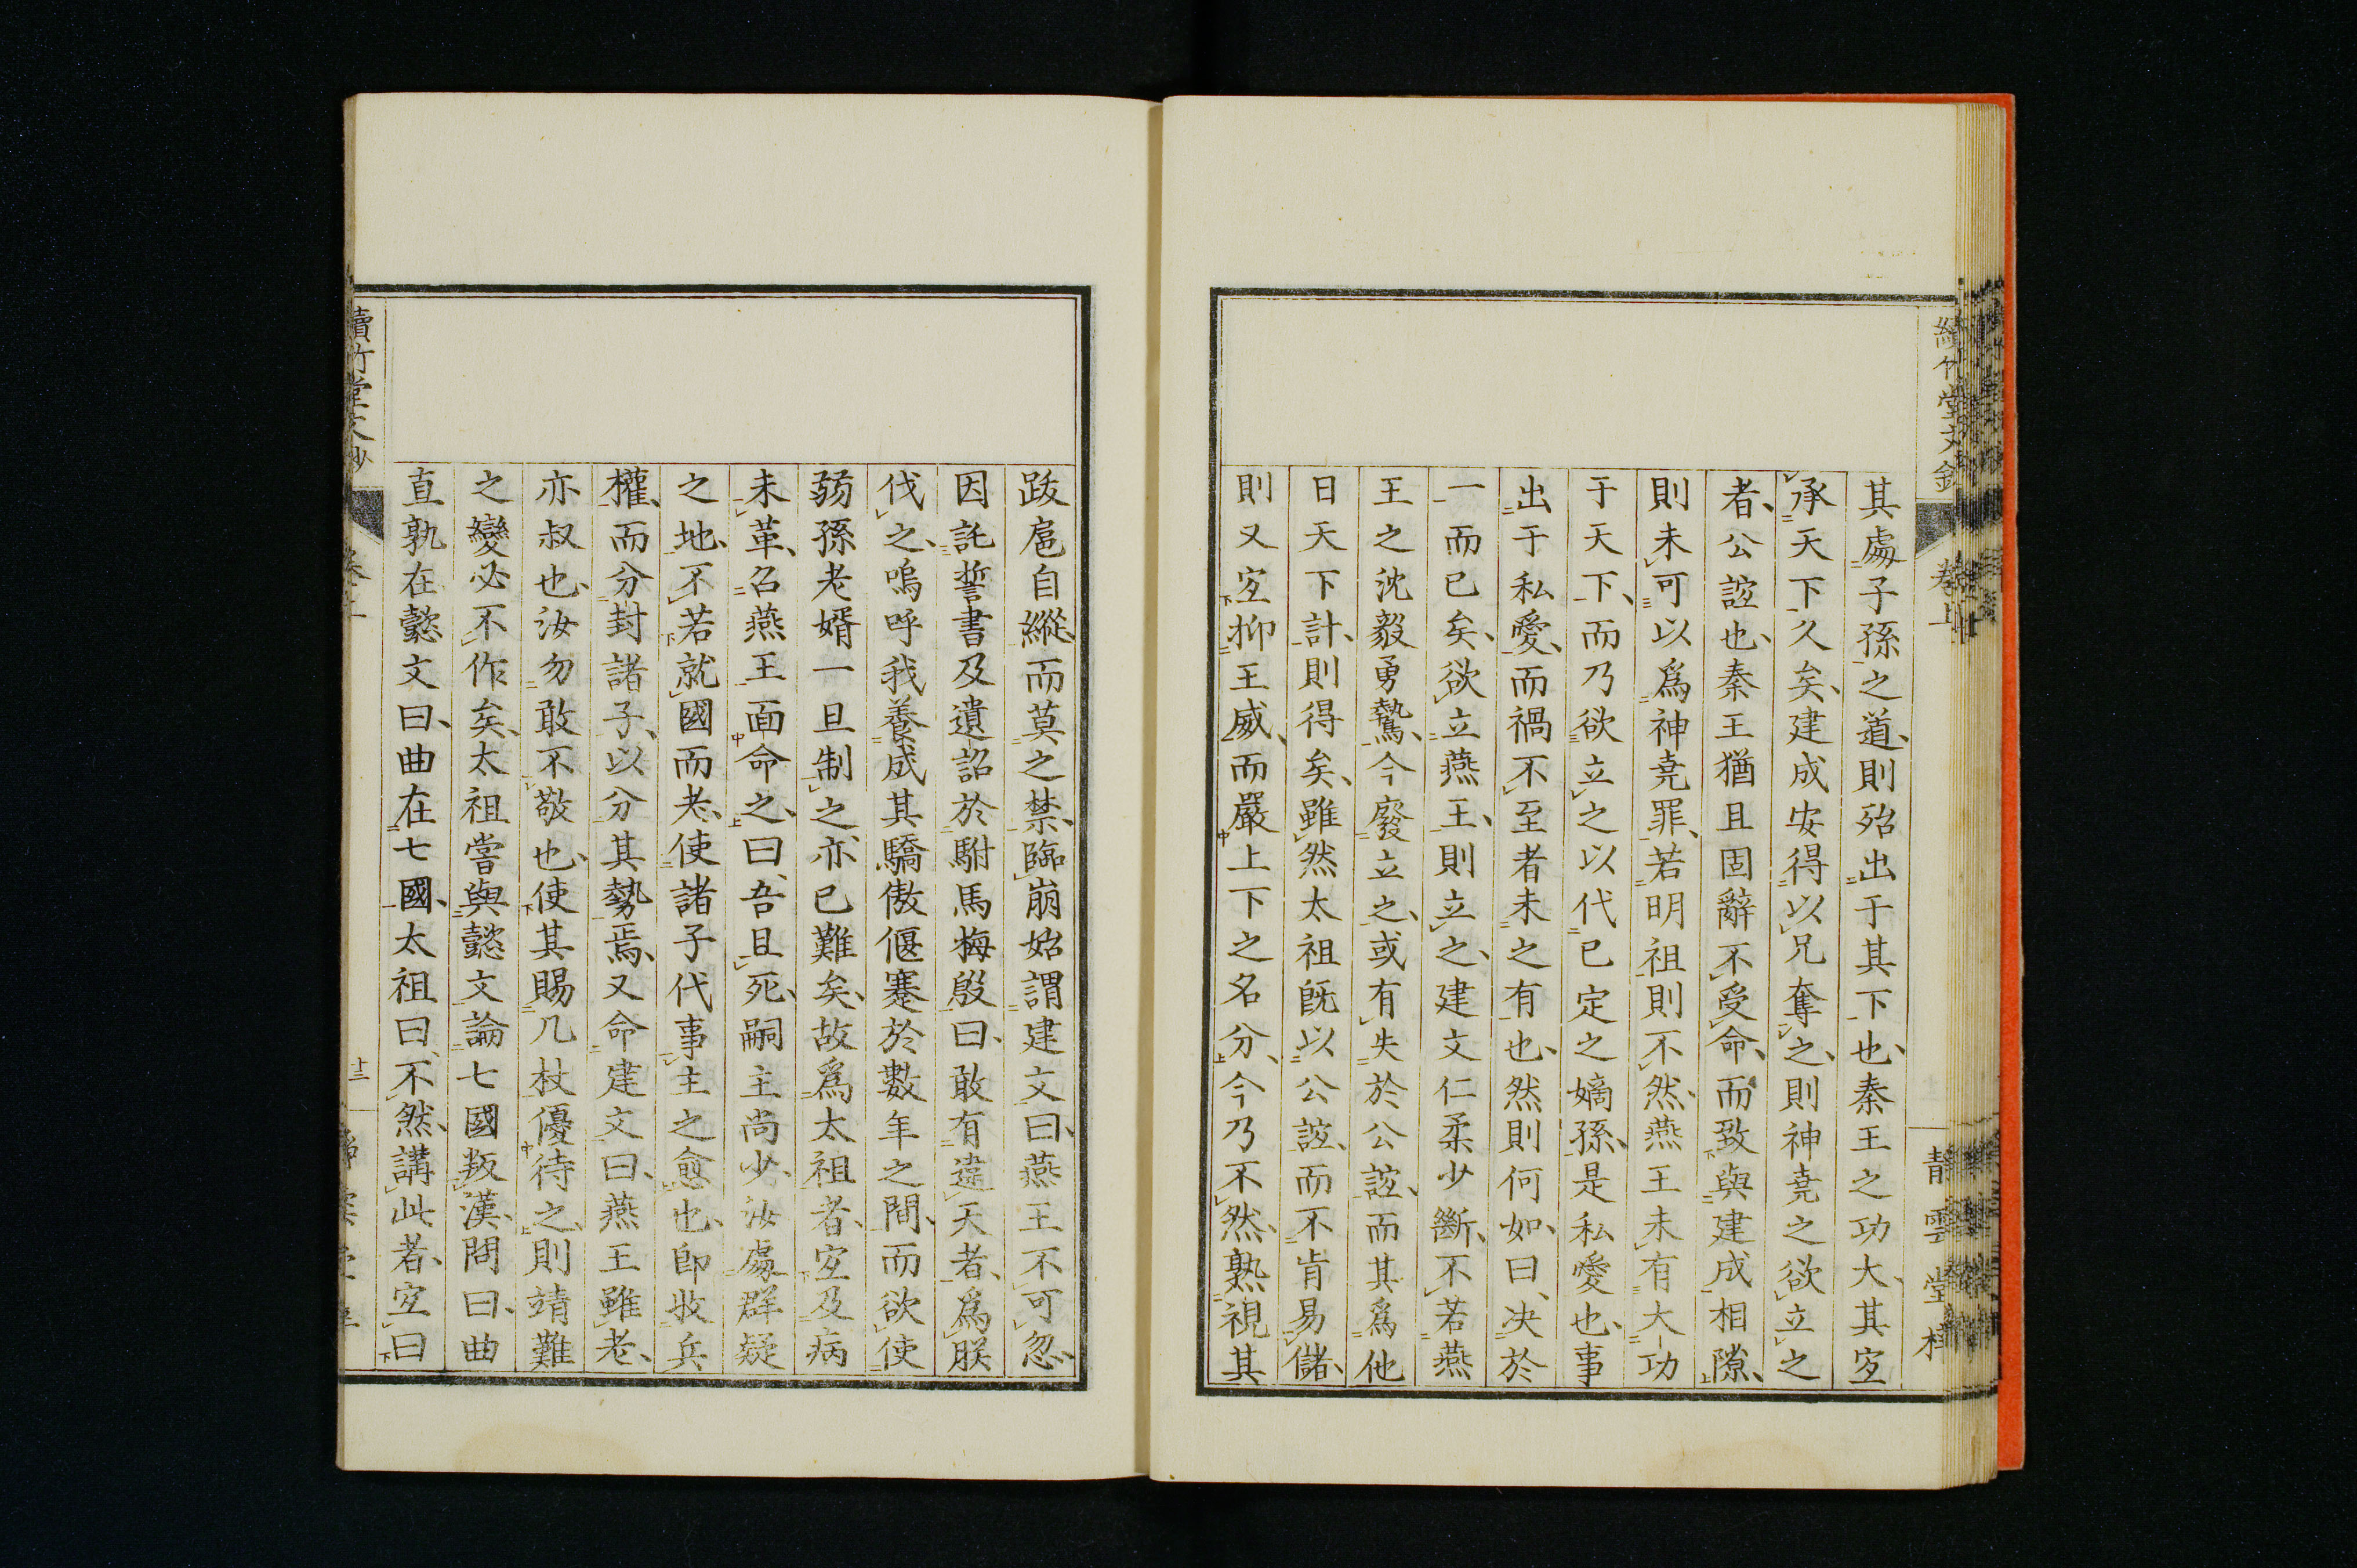 續竹堂文鈔
卷上
靜雲堂梓
其處子孫之道、則殆出于其下也、秦王之功大、其宐
承天下久矣、建成安得以兄奪之、則神堯之欲立之
者、公誼也、秦王猶且固辭不受命、而致與建成相隙、
則未可以爲神堯罪、若明祖則不然、燕王未有大功
于天下、而乃欲立之以代已定之嫡孫、是私愛也、事
出于私愛、而禍不至者未之有也、然則何如、曰、决於
一而已矣、欲立燕王、則立之、建文仁柔少斷、不若燕
王之沈毅勇鷙、今廢立之、或有失於公誼、而其爲他
日天下計、則得矣、雖然太祖既以公誼、而不肯易儲、
則又宐抑王威、而嚴上下之名分、今乃不然、熟視其
跋扈自縱、而莫之禁、臨崩始謂建文曰、燕王不可忽、
因託誓書及遺詔於駙馬梅殷曰、敢有違天者、爲朕
伐之、嗚呼我養成其驕傲偃蹇於數年之間、而欲使
弱孫老婿一旦制之、亦已難矣、故爲太祖者、宐及病
未革、召燕王面命之、曰、吾且死、嗣主尚少、汝處群疑
之地、不若就國而老、使諸子代事主之愈也、即收兵
權、而分封諸子、以分其勢焉、又命建文曰、燕王雖老、
亦叔也、汝勿敢不敬也、使其賜几杖優待之、則靖難
之變必不作矣、太祖嘗與懿文論七國叛漢、問曰、曲
直孰在懿文曰、曲在七國、太祖曰、不然、講此者、宐曰
續竹堂文鈔
卷上
十三